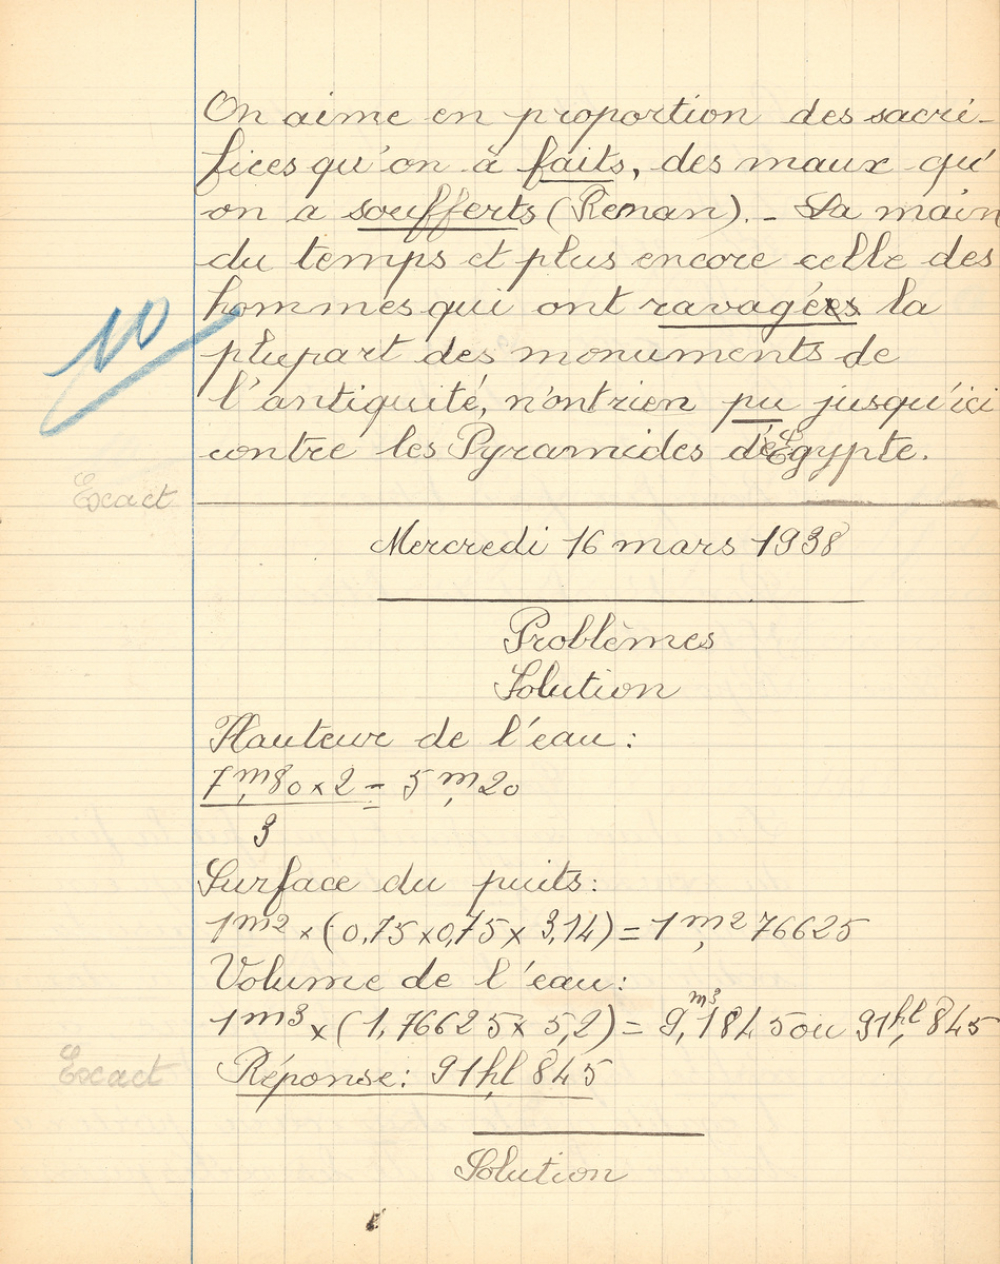 On aime en proportion des sacri-
fices qu'on a faits, des maux qu'
on a soufferts (Renan). - La main
du temps et plus encore celle des
hommes qui ont ravagé la
10
plupart des monuments de
l'antiquité, n'ont rien pu jusqu'ici
contre les Pyramides d'Egypte.
Exact
Mercredi 16 mars 1938
Problèmes
Solution
Hauteur de l'eau :
7m,80 x 2 = 5m,20
3
Surface du puits :
1m2 x (0,75 x 0,75 x 3,14) = 1m2,76625
Volume de l'eau :
1m3 x (1,76625 x 5,2) = 9,m3 1845 ou 91hl,845
Exact
Réponse : 91hl,845
Solution